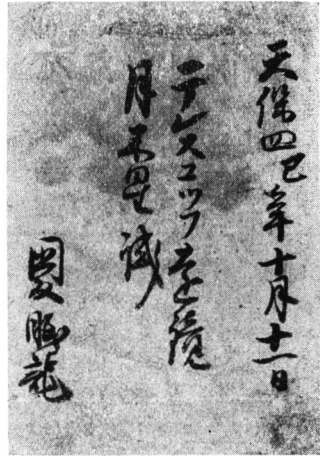 天保四巳年十月十一日
テレスコツフ遠鏡
月木星試
國友眠龍